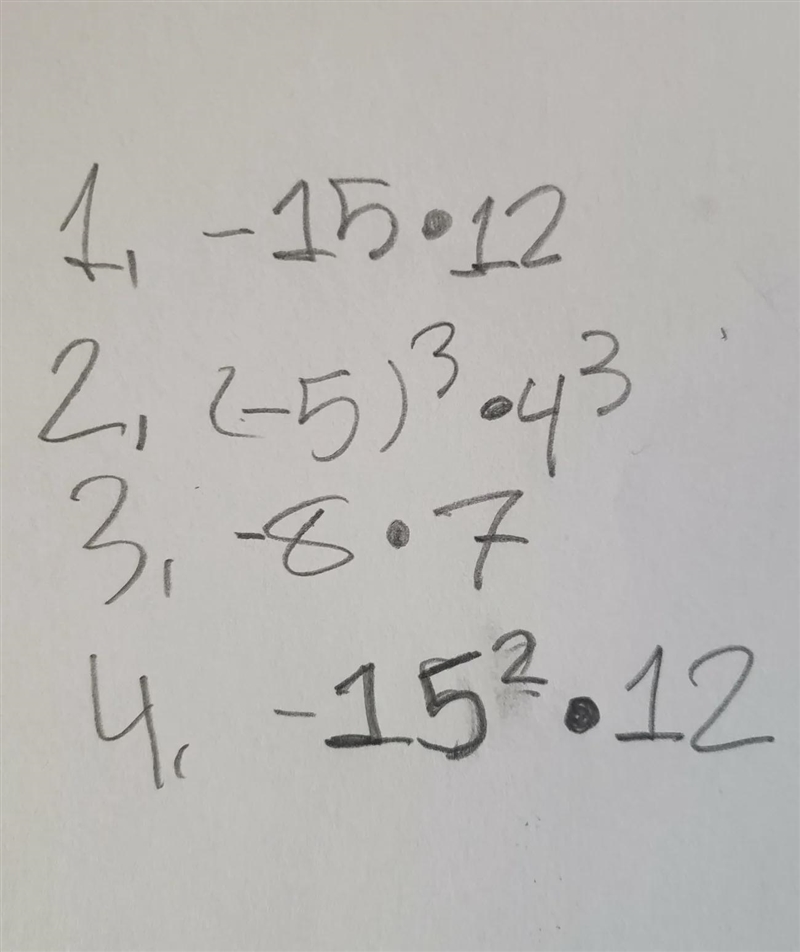 1, -15•12
2, (-5)³•4³
3, -8•7
4, -15²•12